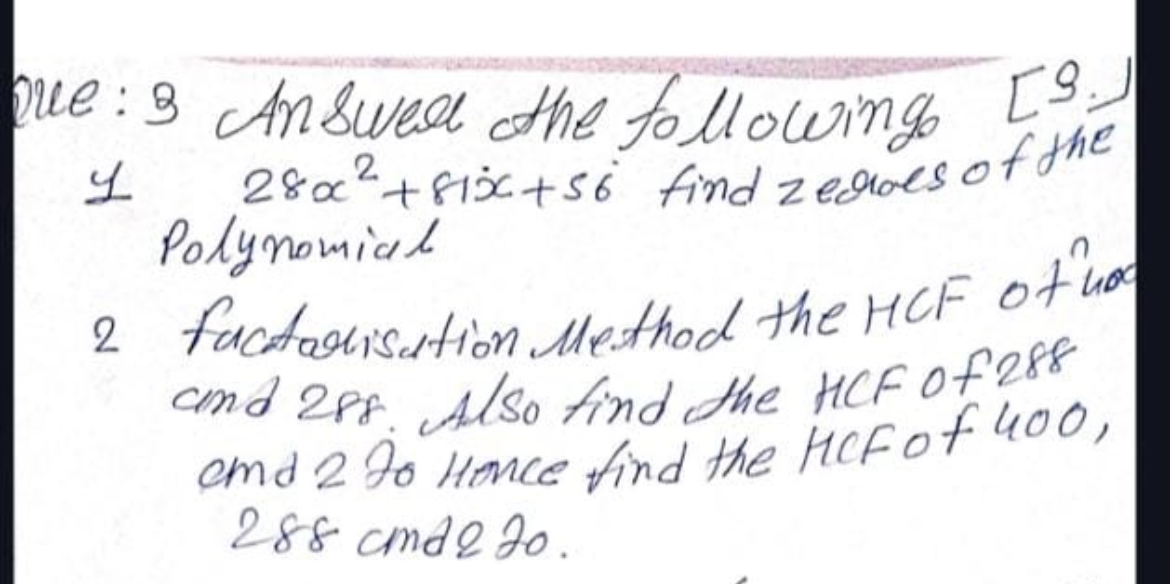 Que : 3 Answer the following [9.]
1 28x² + 81x + 56 find zeroes of the
Polynomial
2 factorisation Method the HCF of 400
and 288. Also find the HCF of 288
and 270 Hence find the HCF of 400,
288 and 270.